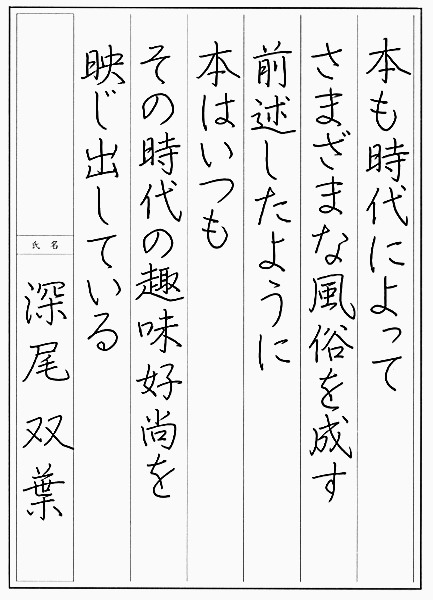 本も時代によって
さまざまな風俗を成す
前述したように
本はいつも
その時代の趣味好尚を
映じ出している
氏名
深尾双葉